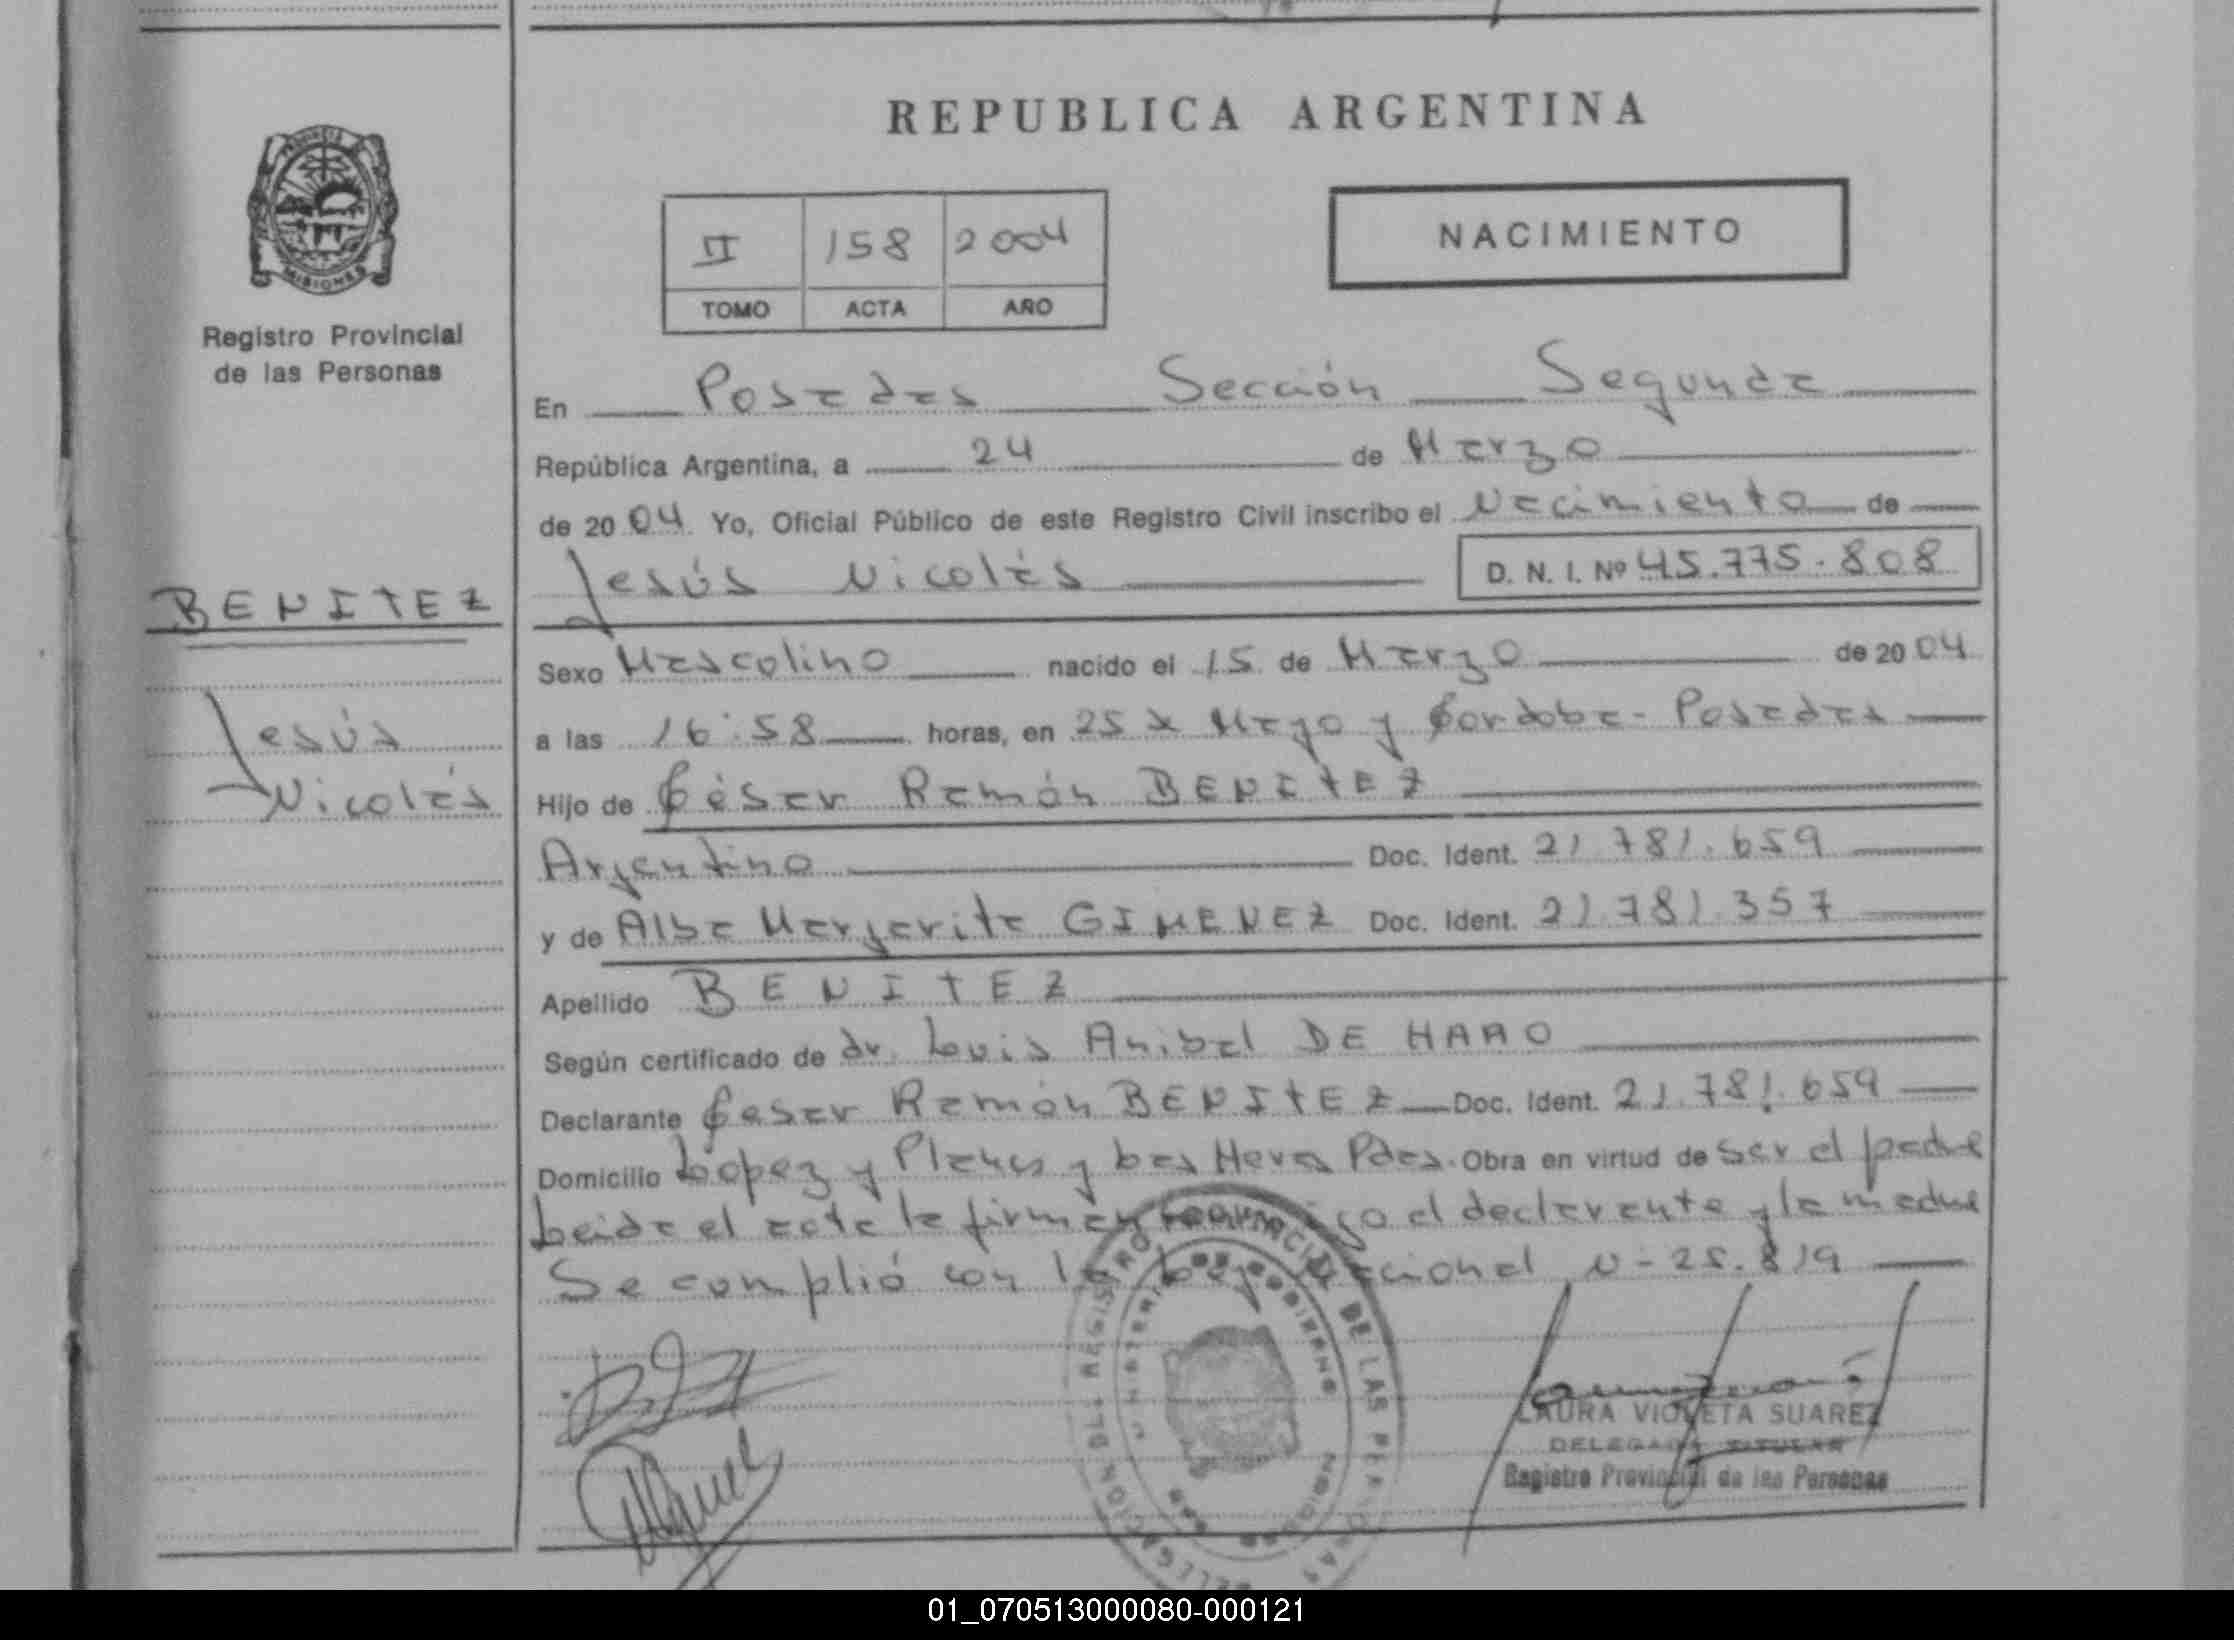 REPUBLICA ARGENTINA
PROVINCIA
MISIONES
Registro Provincial
de las Personas
II 158 2004
TOMO ACTA AÑO
NACIMIENTO
En Posadas Sección Segunda
República Argentina, a 24 de Marzo
de 2004 Yo, Oficial Público de este Registro Civil inscribo el Nacimiento de
Jesús Nicolás D. N. I. Nº 45.775.808
BENITEZ
Jesús
Nicolás
Sexo Masculino nacido el 15 de Marzo de 2004
a las 16:58 horas, en 25 de Mayo y Cordoba - Posadas
Hijo de César Ramón BENITEZ
Argentino Doc. Ident. 21.781.659
y de Alba Margarita GIMENEZ Doc. Ident. 21.781.357
Apellido BENITEZ
Según certificado de dr. Luis Anibal DE HARO
Declarante Cesar Ramón BENITEZ Doc. Ident. 21.781.659
Domicilio López y Planes y Las Heras Pdas. Obra en virtud de ser el padre
Leida el acta la firman conmigo el declarante y la madre
Se cumplió con la Ley Nacional N-25.819
REGISTRO PROVINCIAL DE LAS PERSONAS
LAURA VIOLETA SUAREZ
DELEGADA TITULAR
Registro Provincial de las Personas
01_070513000080-000121